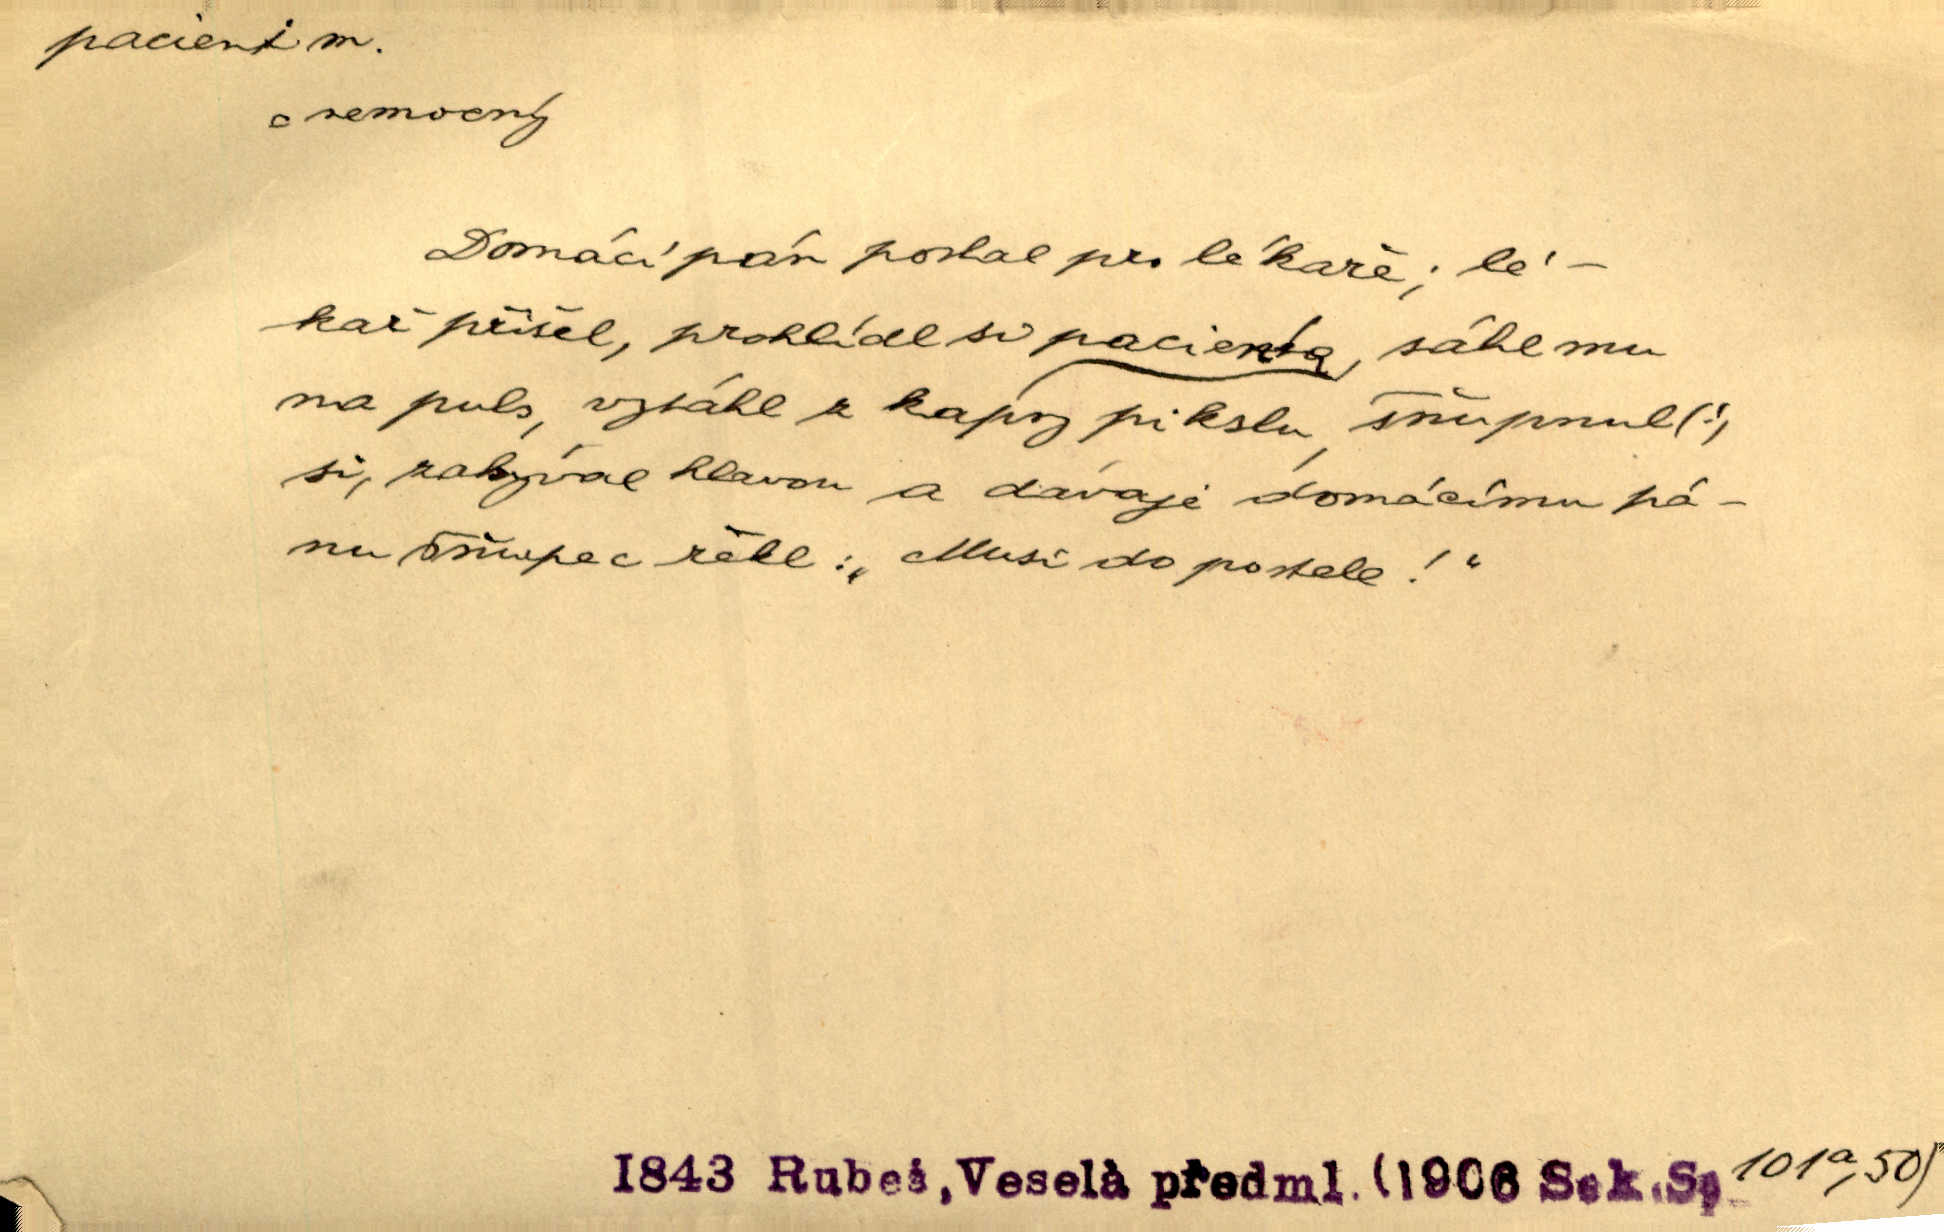 pacient m.
c nemocný
Domácí pán poslal pro lékaře; lé-
kař přišel, prohlídl si pacienta, sáhl mu
na puls, vytáhl z kapsy pikslu, šňupnul (!)
si, zakýval hlavou a dávaje domácímu pá-
nu šňupec řekl: „Musí do postele!“
1843 Rubeš, Veselá předml. (1906 Sek. Sp 101a, 50)